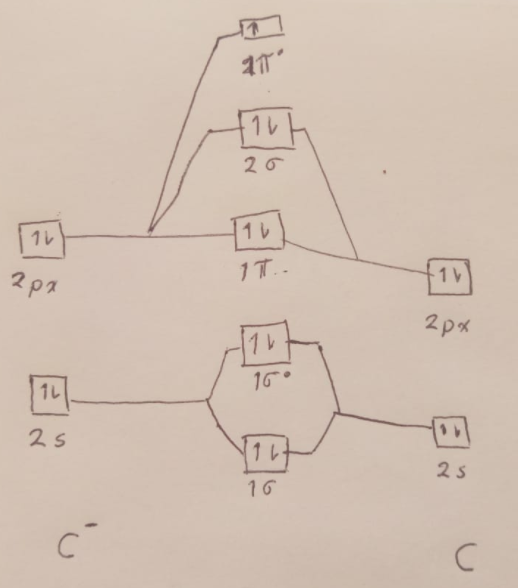 ↑
1π*
↑↓
2σ
↑↓
↑↓
2px
1π..
↑↓
2px
↑↓
1σ*
↑↓
2s
↑↓
2s
↑↓
1σ
C⁻
C